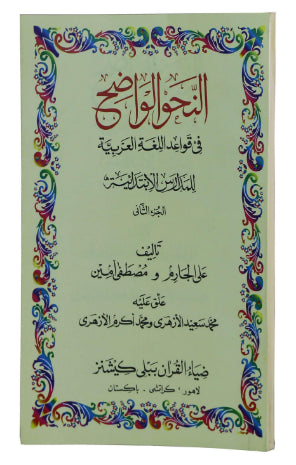 النَّحو الوَاضِح
في قَوَاعِد اللُّغَة العَرَبيَّة
لِلمَدَارِس الابْتِدَائِيَّة
الجُزء الثَّانى
تَأليف
عَلى الجَارِم و مُصْطَفى أمين
عَلَّق عَلَيْه
محمّد سَعِيْد الأزهَرى و محمّد أكرم الأزهَرى
ضِيَاءُ القُرآن پَبلی کیشنز
لاہور ، کراچی ۔ پاکستان